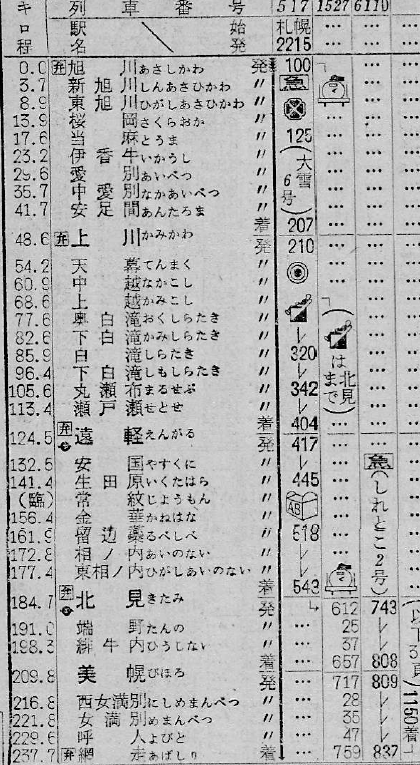 キロ程 列車番号 517 1527 6110
駅名 始発 札幌 2215 … …
0.0 弁 旭川 あさしかわ 発 100 …
3.7 新旭川 しんあさひかわ 〃 急 …
8.9 東旭川 ひがしあさひかわ 〃 …
13.9 桜岡 さくらおか 〃 …
17.6 当麻 とうま 〃 125 … …
23.2 伊香牛 いかうし 〃 … …
29.6 愛別 あいべつ 〃 (大雪6号) … …
35.7 中愛別 なかあいべつ 〃 … …
41.7 安足間 あんたろま 〃 … …
48.6 弁 上川 かみかわ 着 207 … …
発 210 … …
54.2 天幕 てんまく 〃 … …
60.9 中越 なかこし 〃 … …
68.6 上越 かみこし 〃 …
77.6 奥白滝 おくしらたき 〃 レ …
82.6 下白滝 かみしらたき 〃 レ …
85.9 白滝 しらたき 〃 320 (は北見まで) …
96.4 下白滝 しもしらたき 〃 レ …
105.6 丸瀬布 まるせぷ 〃 342 …
113.4 瀬戸瀬 せとせ 〃 レ …
124.5 弁 遠軽 えんがる 着 404 … …
発 417 … …
132.5 安国 やすくに 〃 レ … 急
141.4 生田原 いくたはら 〃 445 … (しれとこ2号)
(臨) 常紋 じょうもん 〃 …
156.4 金華 かねはな 〃 …
161.9 留辺蘂 るべしべ 〃 518 …
172.8 相ノ内 あいのない 〃 レ …
177.4 東相ノ内 ひがしあいのない 〃 レ
184.7 弁 北見 きたみ 着 543
発 612 743
191.0 端野 たんの 〃 … 25 レ
198.3 緋牛内 ひうしない 〃 … 37 レ
209.8 美幌 びほろ 着 … 657 808
発 … 717 809
216.8 西女満別 にしめまんべつ 〃 … 28 レ
221.8 女満別 めまんべつ 〃 … 35 レ
229.6 呼人 よびと 〃 … 47 レ
237.7 弁 網走 あばしり 着 … 759 837
1150着